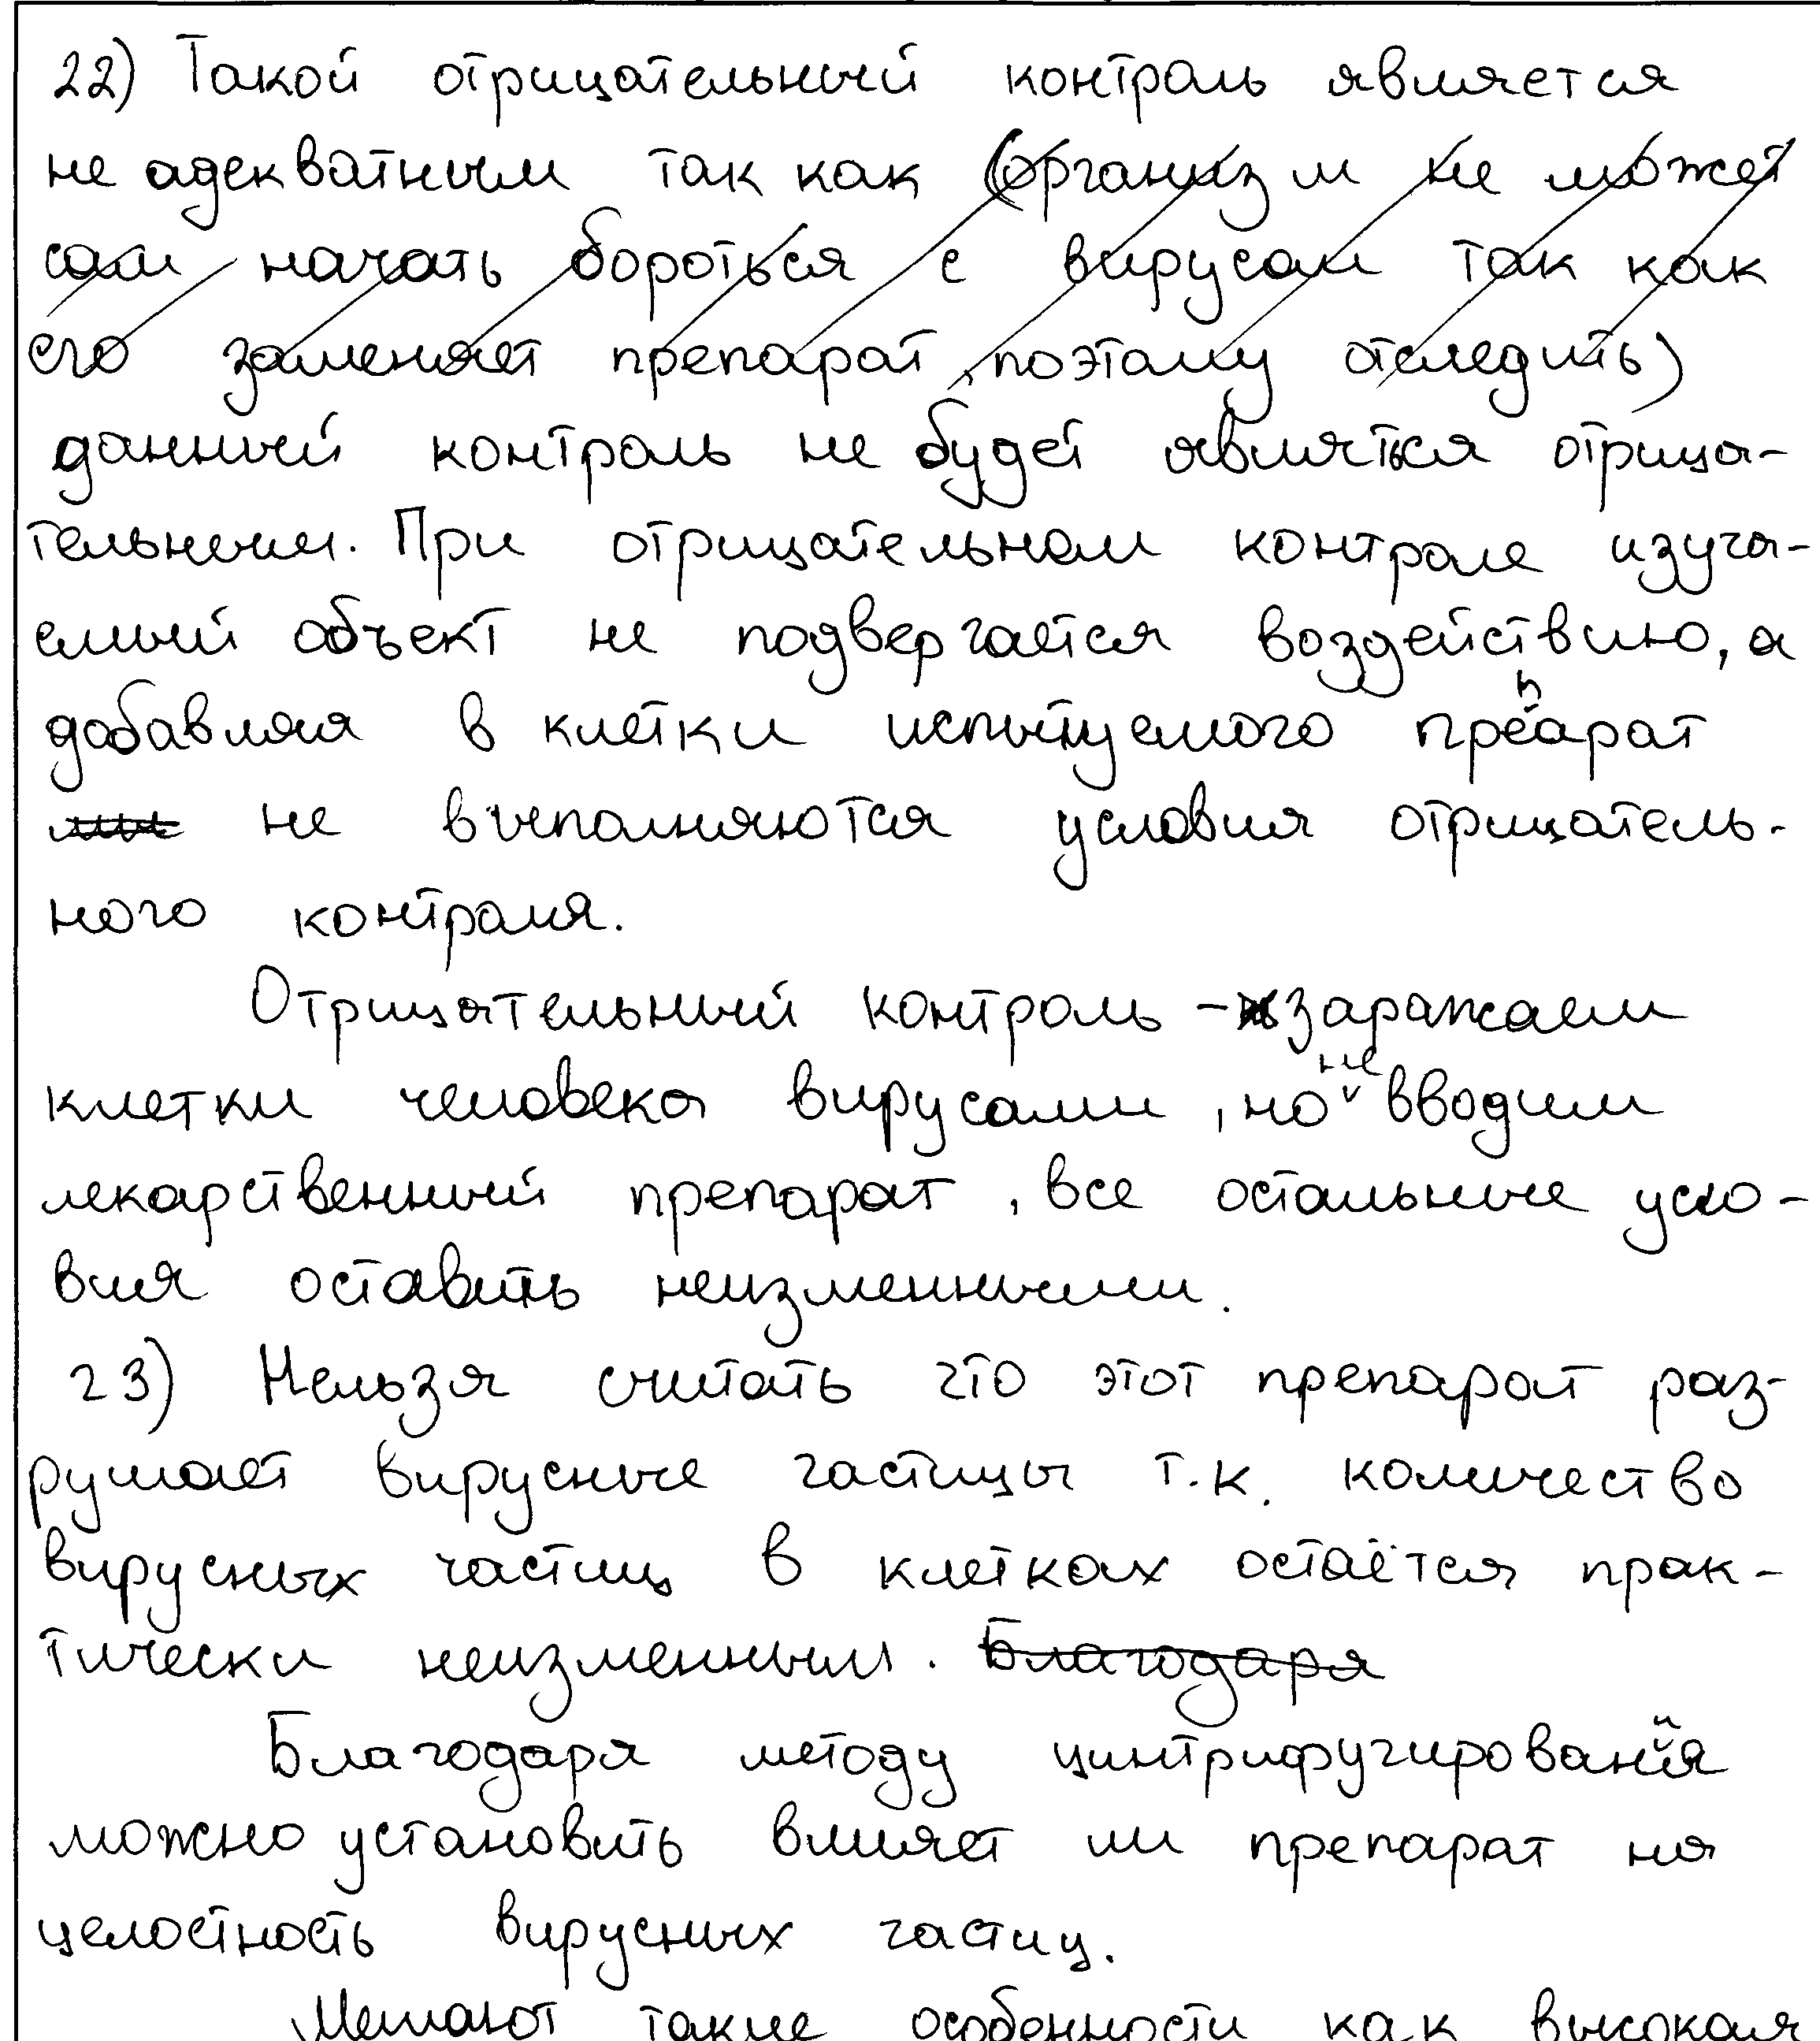 22) Такой отрицательный контроль является
не адекватным так как (организм не может
сам начать бороться с вирусом так как
его заменяет препарат, поэтому отследить)
данный контроль не будет являться отрица-
тельным. При отрицательном контроле изуча-
емый объект не подвергается воздействию, а
добавляя в клетки испытуемого препарат
не выполняются условия отрицатель-
ного контроля.
Отрицательный контроль - заражаем
клетки человека вирусами, но не вводим
лекарственный препарат, все остальные усло-
вия оставить неизменными.
23) Нельзя считать что этот препарат раз-
рушает вирусные частицы т.к. количество
вирусных частиц в клетках остаётся прак-
тически неизменным. Благодаря
Благодаря методу цинтрифугирования
можно установить влияет ли препарат на
целостность вирусных частиц.
Мешают такие особенности как высокая